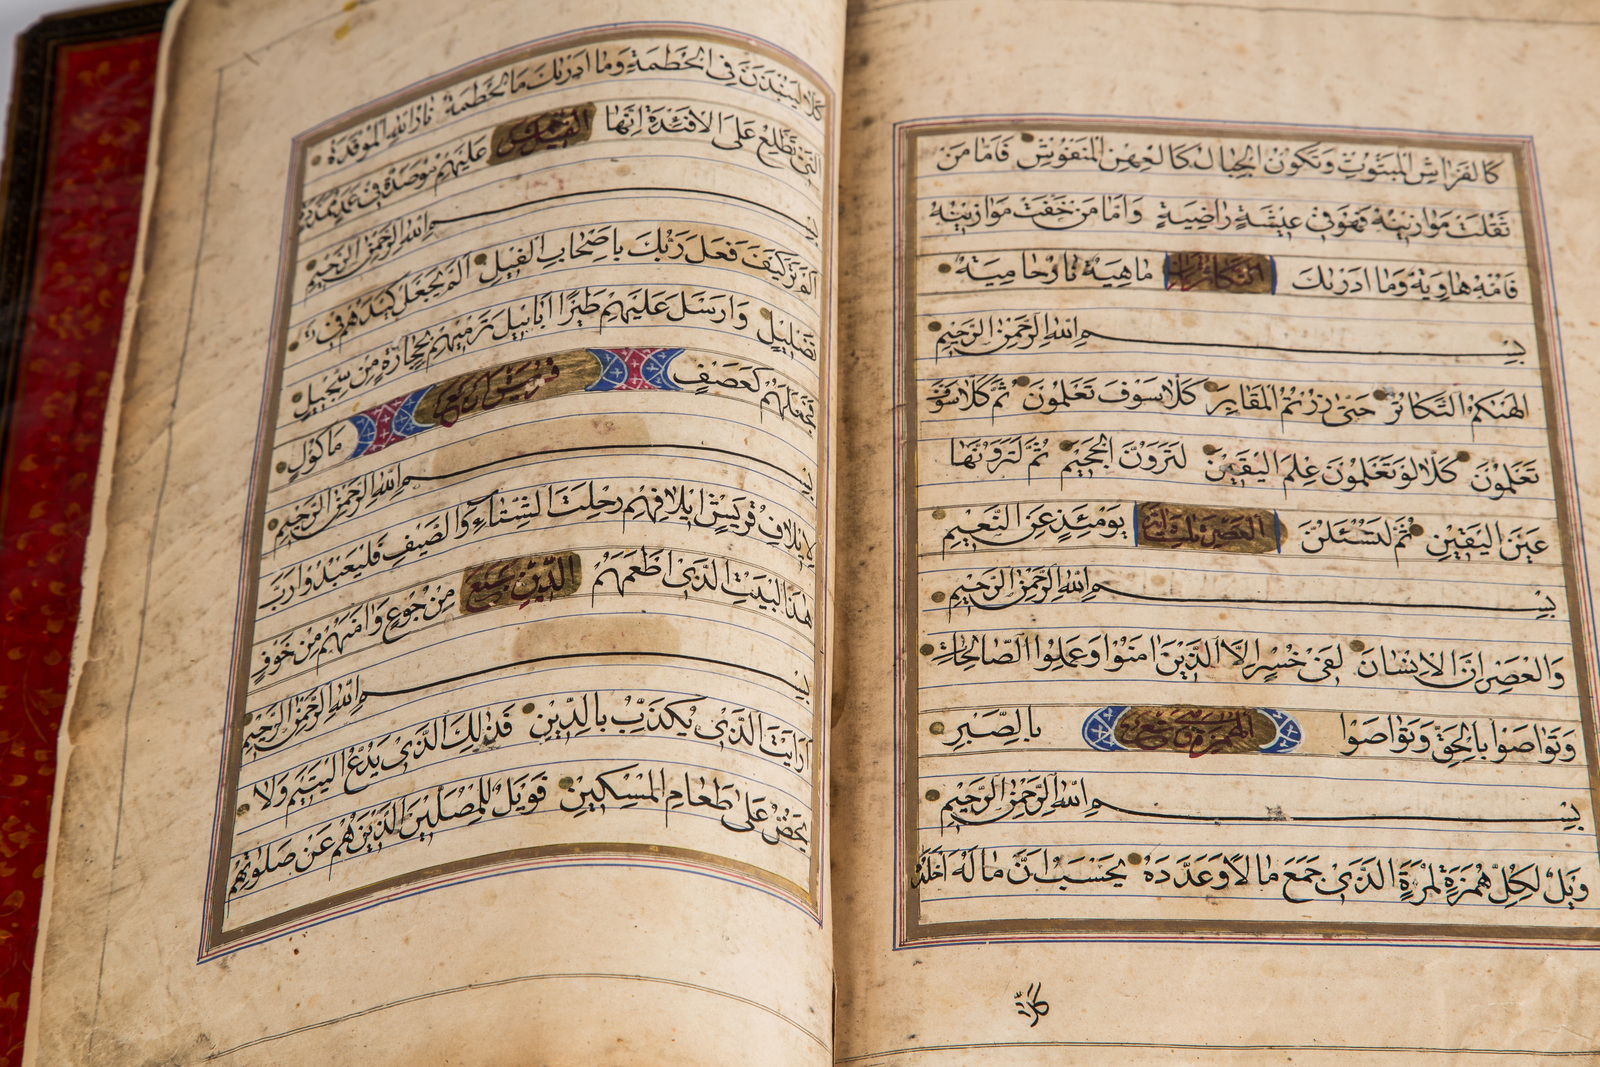 كالفراش المبثوث وتكون الجبال كالعهن المنفوش فاما من
ثقلت موازينه فهو في عيشة راضية واما من خفت موازينه
فامه هاوية وما ادريك التكاثر ماهية نار حامية
بسم الله الرحمن الرحيم
الهيكم التكاثر حتى زرتم المقابر كلا سوف تعلمون ثم كلا سوف
تعلمون كلا لو تعلمون علم اليقين لترون الجحيم ثم لترونها
عين اليقين ثم لتسئلن العصر ثلث ايات يومئذ عن النعيم
بسم الله الرحمن الرحيم
والعصر ان الانسان لفي خسر الا الذين امنوا وعملوا الصالحات
وتواصوا بالحق وتواصوا الهمزة بالصبر
بسم الله الرحمن الرحيم
ويل لكل همزة لمزة الذي جمع مالا وعدده يحسب ان ماله اخلده
كلا
كلا لينبذن في الحطمة وما ادريك ما الحطمة نار الله الموقدة
التي تطلع على الافئدة انها الفيل عليهم موصدة في عمد ممددة
بسم الله الرحمن الرحيم
الم تر كيف فعل ربك باصحاب الفيل الم يجعل كيدهم في
تضليل وارسل عليهم طيرا ابابيل ترميهم بحجارة من سجيل
فجعلهم كعصف قريش اربع ماكول
بسم الله الرحمن الرحيم
لايلاف قريش ايلافهم رحلت الشتاء والصيف فليعبدوا رب
هذا البيت الذي اطعمهم الدين من جوع وامنهم من خوف
بسم الله الرحمن الرحيم
ارايت الذي يكذب بالدين فذلك الذي يدع اليتيم ولا
يحض على طعام المسكين فويل للمصلين الذين هم عن صلوتهم